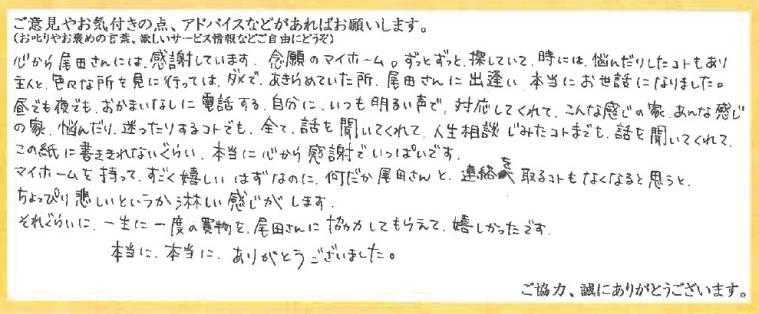 ご意見やお気付きの点、アドバイスなどがあればお願いします。
(お叱りやお褒めの言葉、欲しいサービス情報などご自由にどうぞ)
心から尾田さんには、感謝しています。念願のマイホーム。ずっとずっと、探していて、時には、悩んだりしたコトもあり
主人と、色々な所を見に行っては、ダメで、あきらめていた所、尾田さんに出逢い、本当にお世話になりました。
昼でも夜でも、おかまいなしに電話する、自分に、いつも明るい声で、対応してくれて、こんな感じの家、あんな感じ
の家、悩んだり、迷ったりするコトでも、全て、話を聞いてくれて、人生相談じみたコトまでも、話を聞いてくれて、
この紙に書ききれないぐらい、本当に心から感謝でいっぱいです。
マイホームを持って、すごく嬉しいはずなのに、何だか尾田さんと、連絡を取るコトもなくなると思うと、
ちょっぴり悲しいというか淋しい感じがします。
それぐらいに、一生に一度の買物を、尾田さんに協力してもらえて、嬉しかったです。
本当に、本当に、ありがとうございました。
ご協力、誠にありがとうございます。